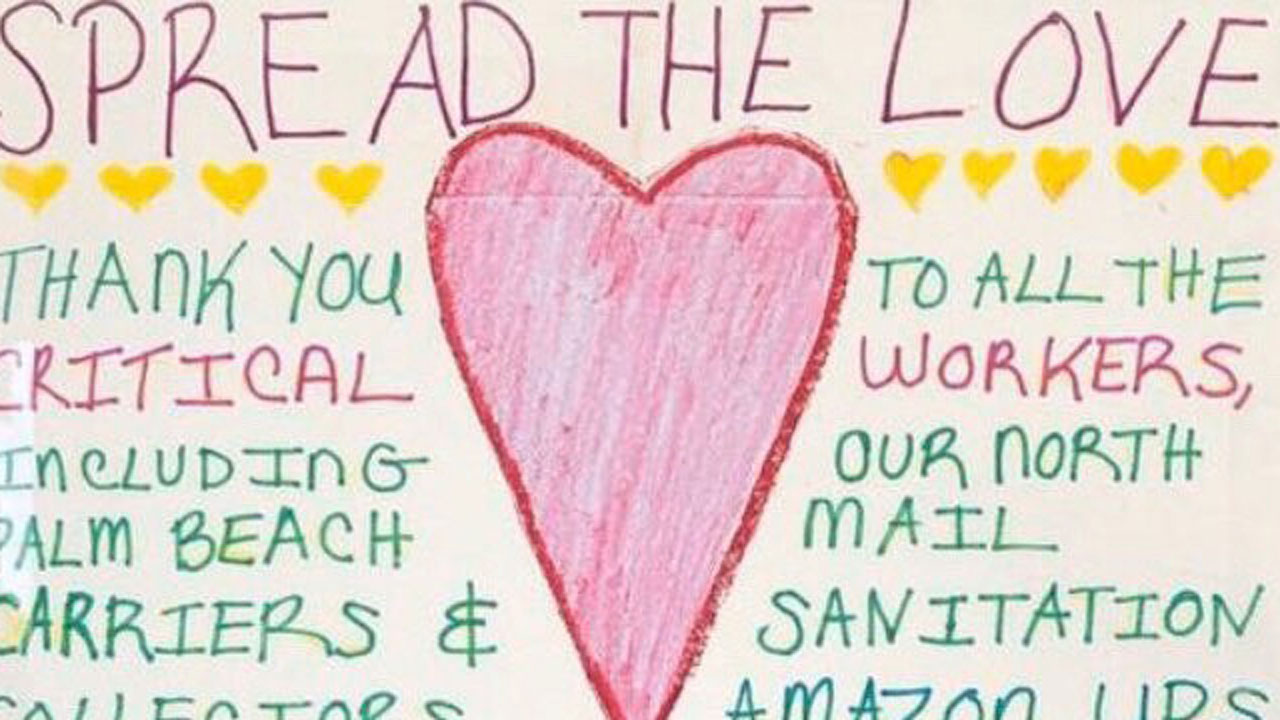 SPREAD THE LOVE
THANK YOU TO ALL THE
CRITICAL WORKERS,
INCLUDING OUR NORTH
PALM BEACH MAIL
CARRIERS & SANITATION
COLLECTORS AMAZON UPS